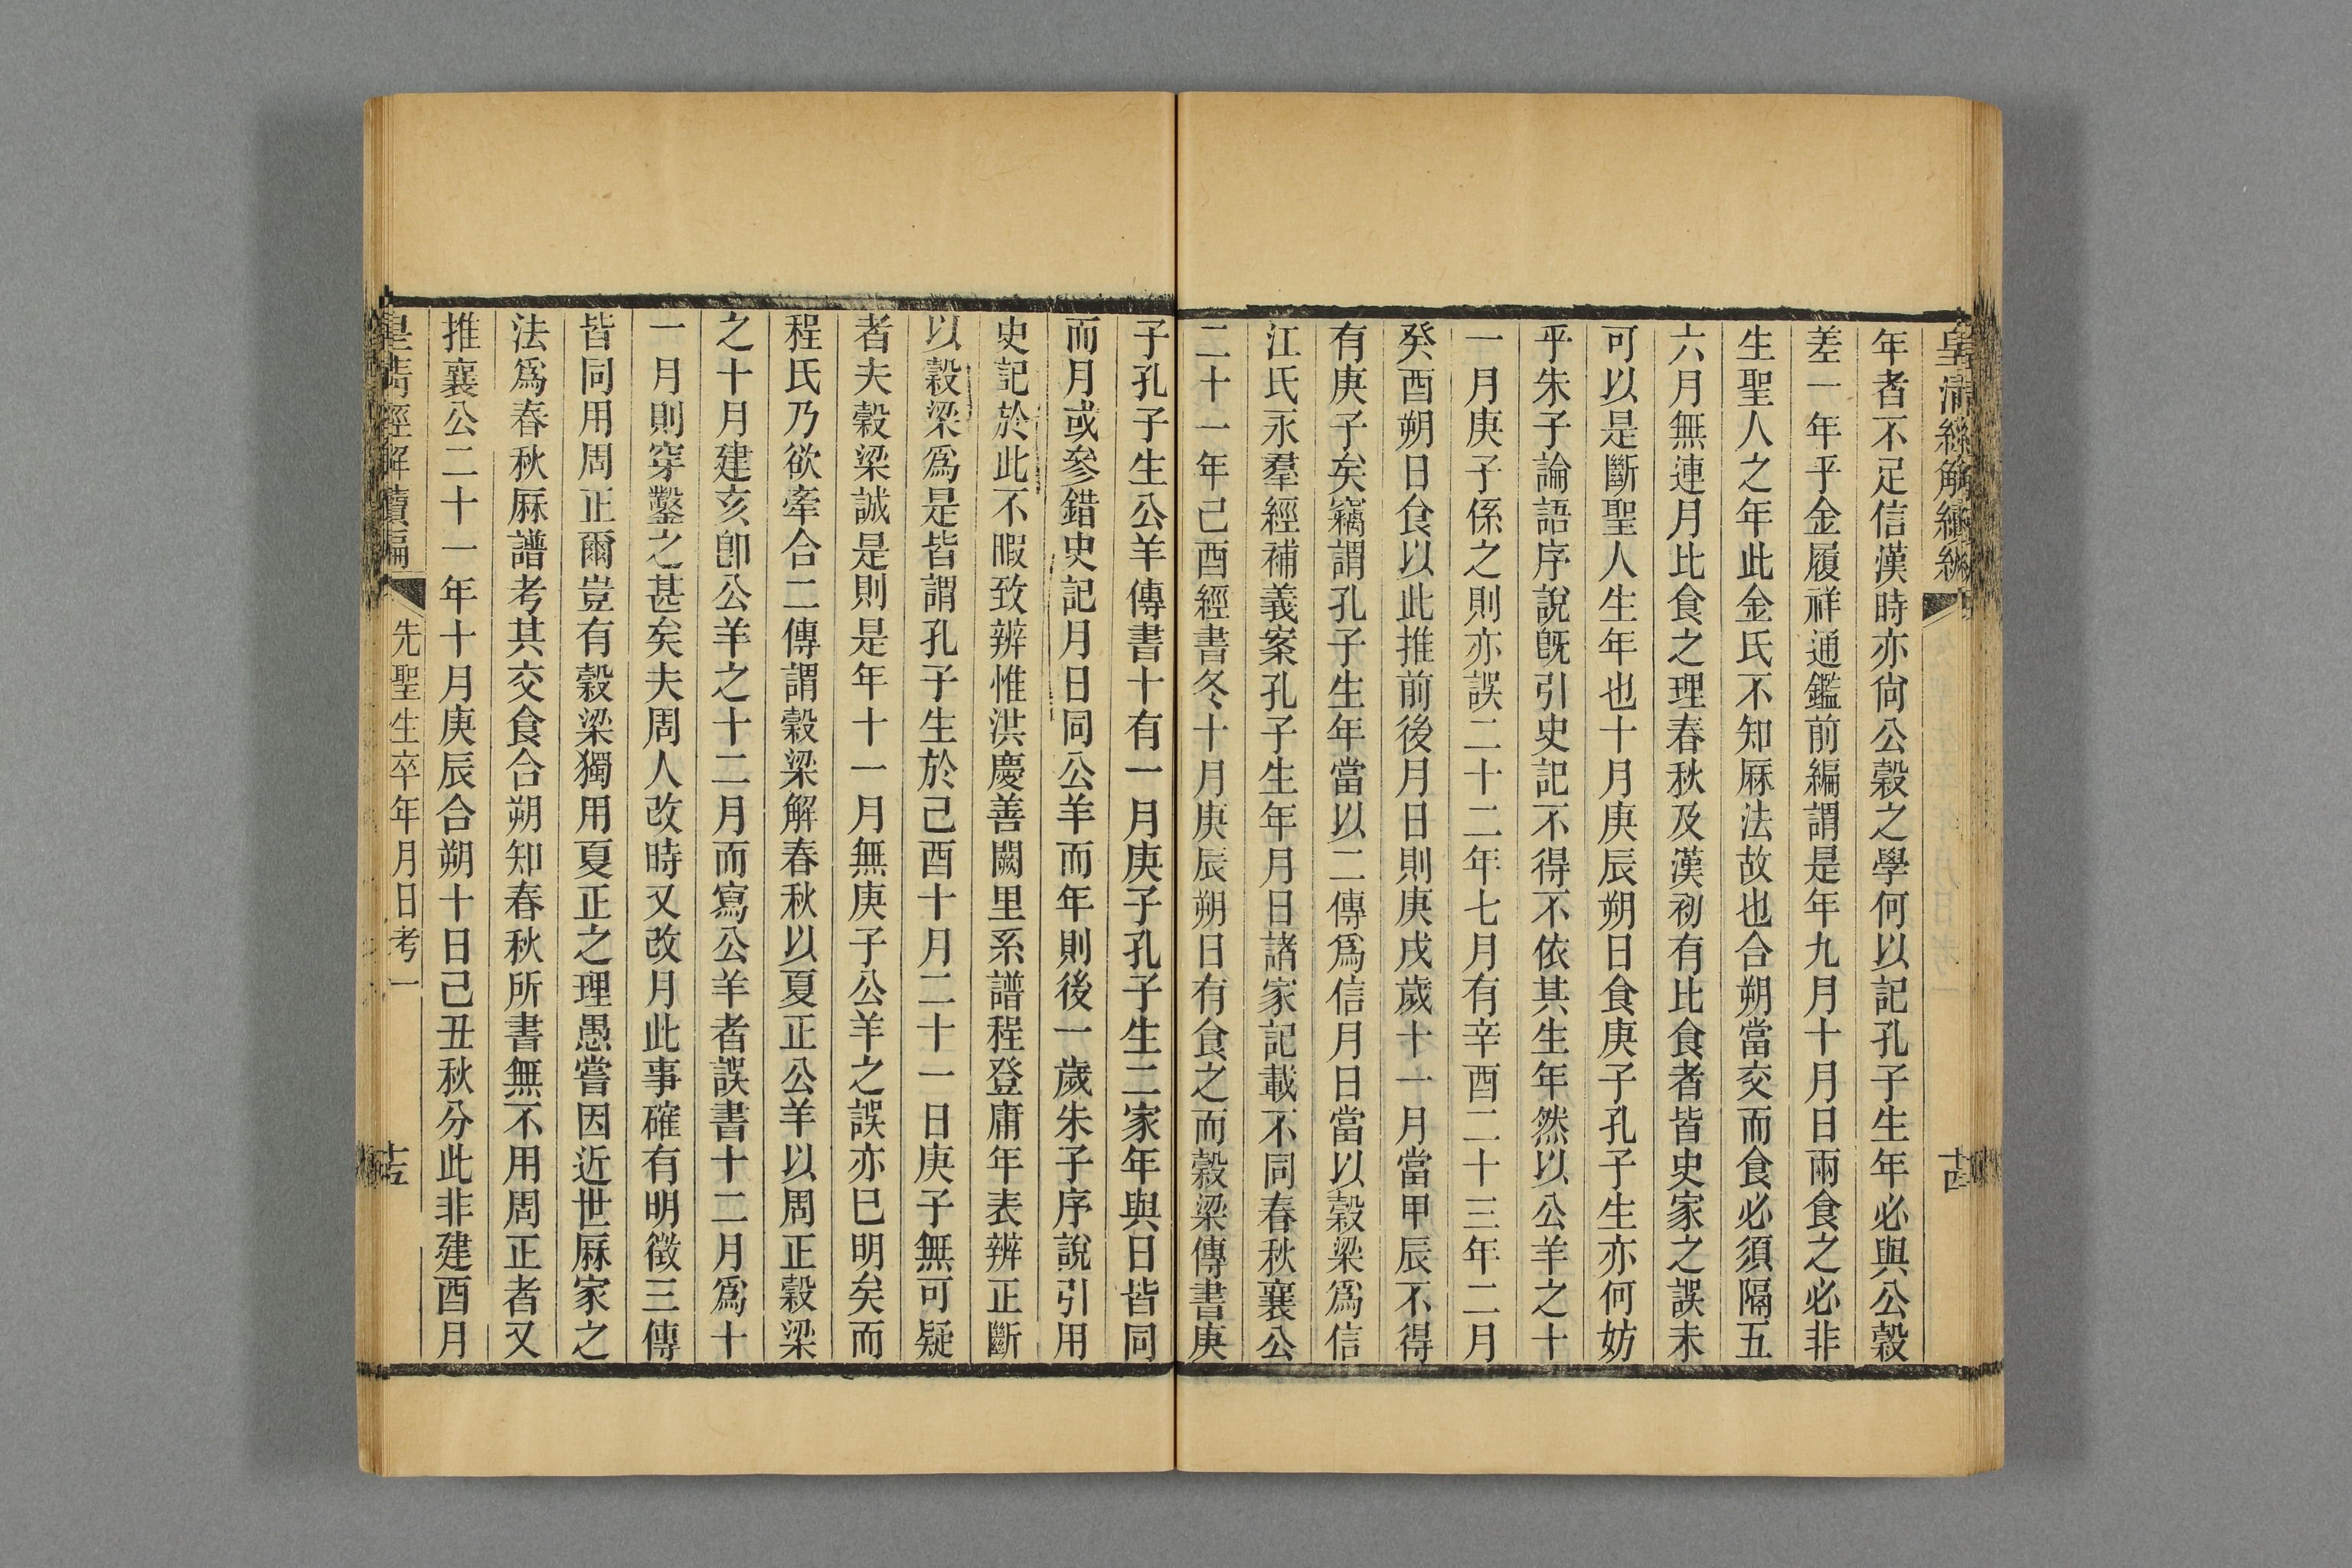 皇清經解續編
十四
年者不足信漢時亦尙公穀之學何以記孔子生年必與公穀
差一年乎金履祥通鑑前編謂是年九月十月日兩食之必非
生聖人之年此金氏不知厤法故也合朔當交而食必須隔五
六月無連月比食之理春秋及漢初有比食者皆史家之誤未
可以是斷聖人生年也十月庚辰朔日食庚子孔子生亦何妨
乎朱子論語序說旣引史記不得不依其生年然以公羊之十
一月庚子係之則亦誤二十二年七月有辛酉二十三年二月
癸酉朔日食以此推前後月日則庚戌歲十一月當甲辰不得
有庚子矣竊謂孔子生年當以二傳爲信月日當以穀梁爲信
江氏永羣經補義案孔子生年月日諸家記載不同春秋襄公
二十一年己酉經書冬十月庚辰朔日有食之而穀梁傳書庚
子孔子生公羊傳書十有一月庚子孔子生二家年與日皆同
而月或參錯史記月日同公羊而年則後一歲朱子序說引用
史記於此不暇致辨惟洪慶善闕里系譜程登庸年表辨正斷
以穀梁爲是皆謂孔子生於己酉十月二十一日庚子無可疑
者夫穀梁誠是則是年十一月無庚子公羊之誤亦巳明矣而
程氏乃欲牽合二傳謂穀梁解春秋以夏正公羊以周正穀梁
之十月建亥卽公羊之十二月而寫公羊者誤書十二月爲十
一月則穿鑿之甚矣夫周人改時又改月此事確有明徵三傳
皆同用周正爾豈有穀梁獨用夏正之理愚嘗因近世厤家之
法爲春秋厤譜考其交食合朔知春秋所書無不用周正者又
推襄公二十一年十月庚辰合朔十日己丑秋分此非建酉月
皇清經解續編
先聖生卒年月日考一
十五